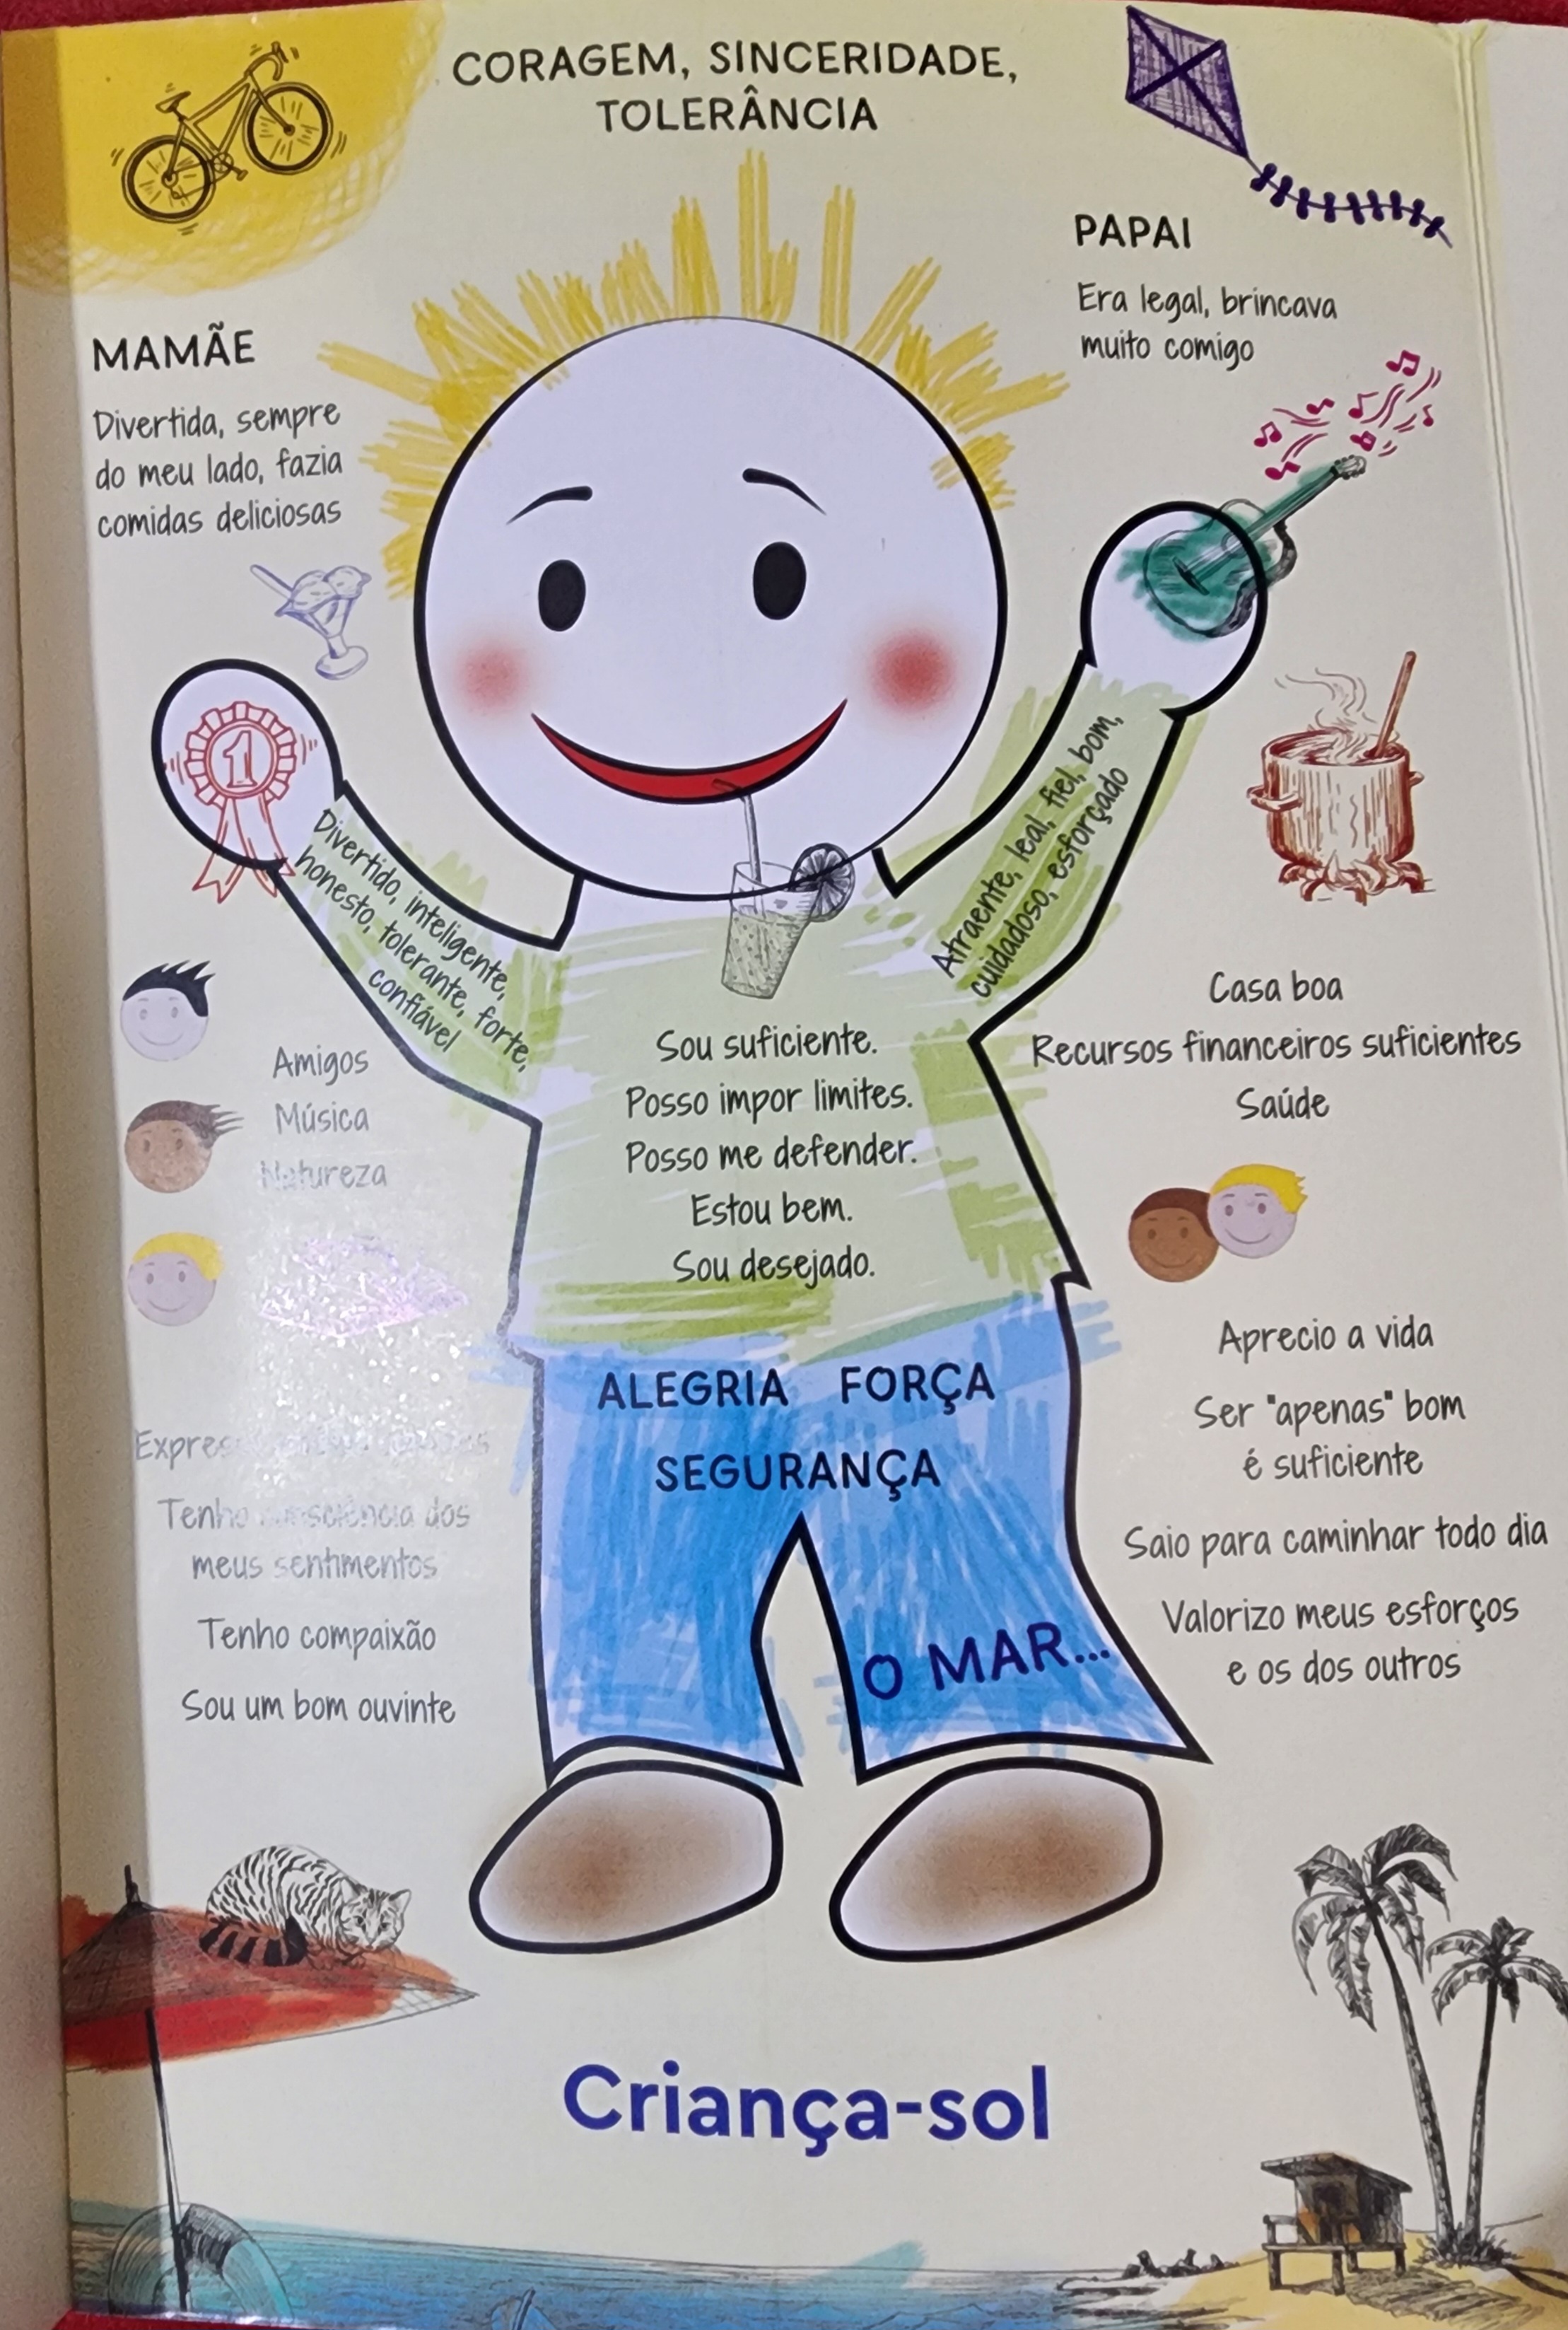 CORAGEM, SINCERIDADE,
TOLERÂNCIA
MAMÃE
Divertida, sempre
do meu lado, fazia
comidas deliciosas
PAPAI
Era legal, brincava
muito comigo
1
Divertido, inteligente,
honesto, tolerante, forte,
confiável
Atraente, leal, fiel, bom,
cuidadoso, esforçado
Amigos
Música
Natureza
Sou suficiente.
Posso impor limites.
Posso me defender.
Estou bem.
Sou desejado.
Casa boa
Recursos financeiros suficientes
Saúde
ALEGRIA FORÇA
SEGURANÇA
O MAR...
Tenho consciência dos
meus sentimentos
Tenho compaixão
Sou um bom ouvinte
Aprecio a vida
Ser "apenas" bom
é suficiente
Saio para caminhar todo dia
Valorizo meus esforços
e os dos outros
Criança-sol